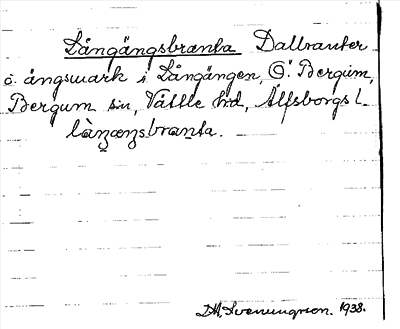 Långängsbranta Dalbranter
o. ängsmark i Långängen, Ö. Bergum,
Bergum sn, Vättle hd, Älfsborgs l.
làŋæŋsbranta.
D.H. Svenungson. 1938.